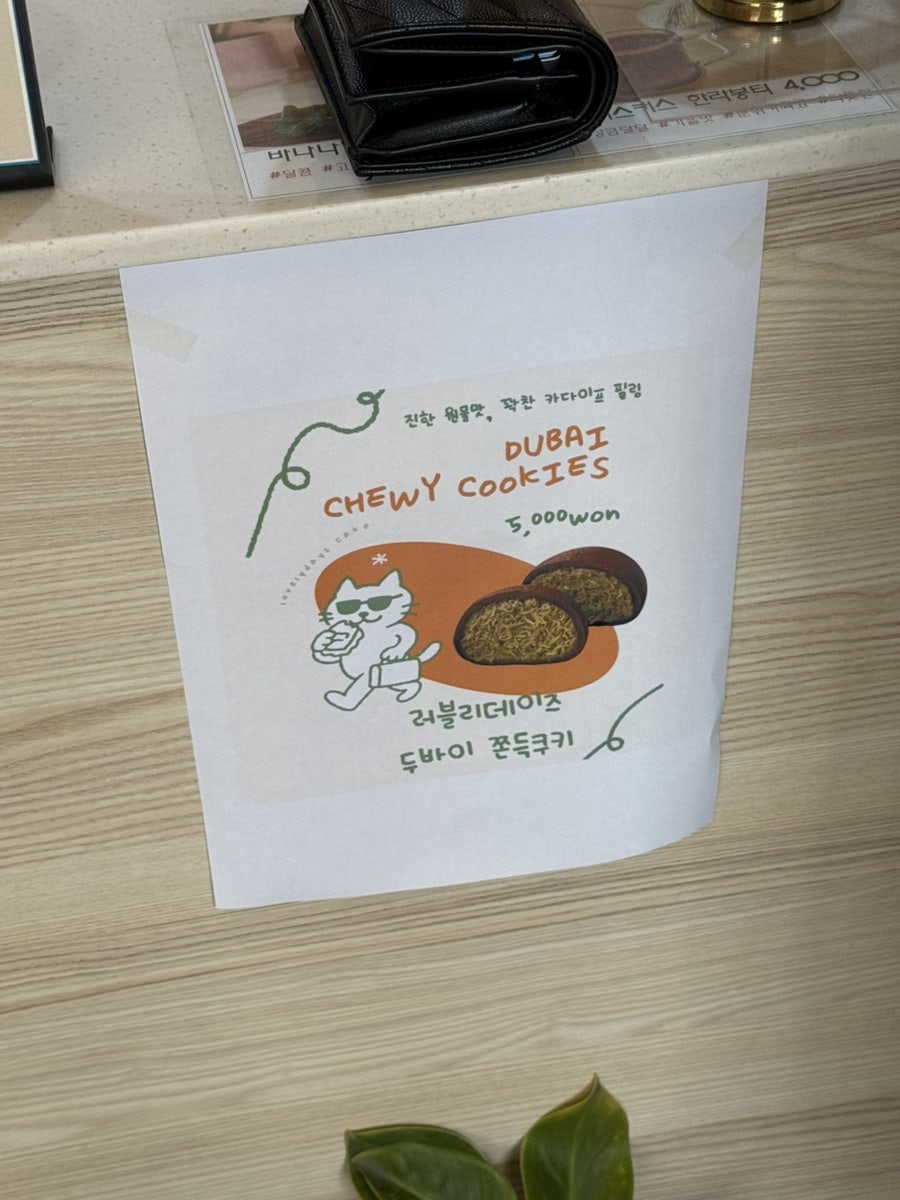 바나나
#달콤
한라봉티 4,000
진한 원물맛, 꽉찬 카다이프 필링
DUBAI
CHEWY COOKIES
5,000won
lovelydays cake
러블리데이즈
두바이 쫀득쿠키